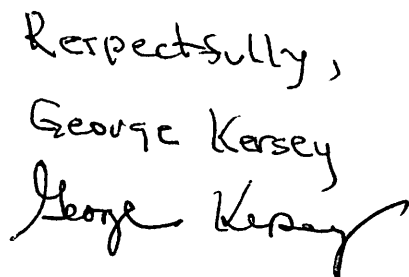 Respectfully,
George Kersey
George Kersey